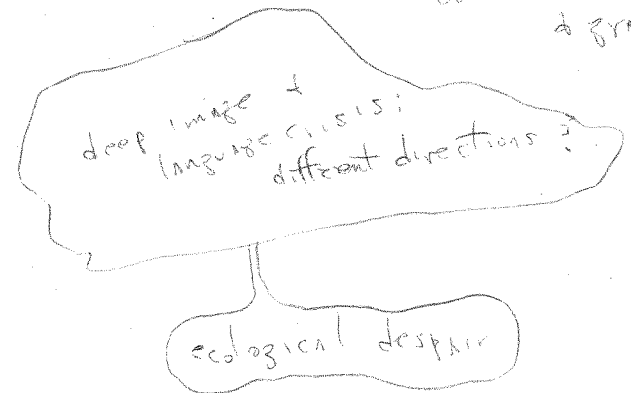 deep image &
language crisis:
different directions?
ecological despair